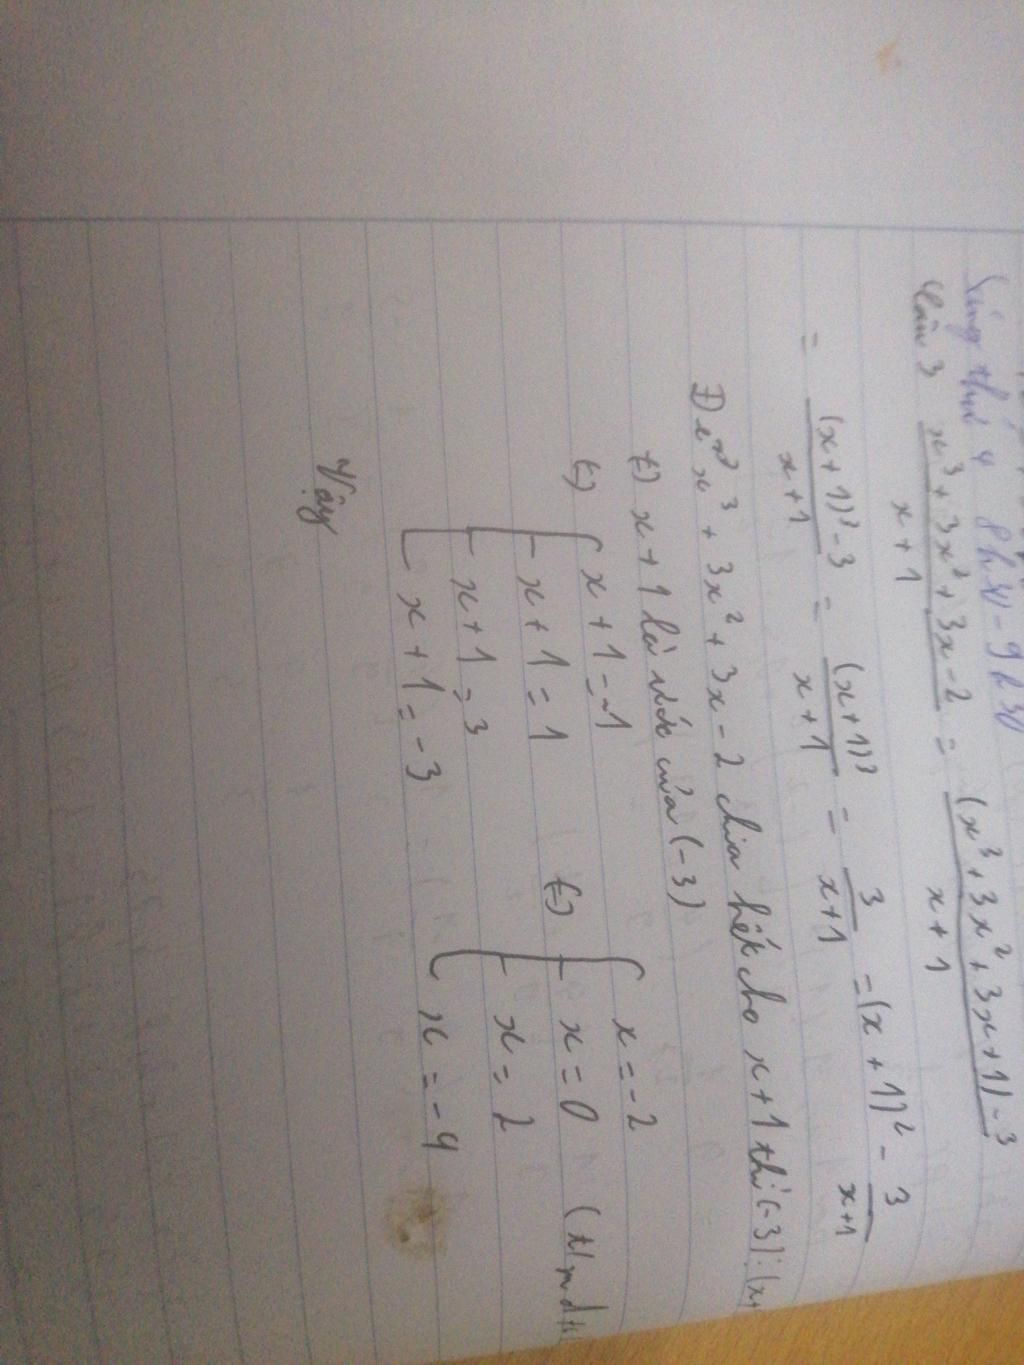 Sáng thứ 4 8h30 - 9h30
Câu 3 x³ + 3x² + 3x - 2 / x + 1 = (x³ + 3x² + 3x + 1) - 3 / x + 1
= (x + 1)³ - 3 / x + 1 = (x + 1)³ / x + 1 = 3 / x + 1 = (x + 1)² - 3 / x + 1
Để x³ + 3x² + 3x - 2 chia hết cho x + 1 thì (-3) ⋮ (x+
x + 1 là ước của (-3)
x + 1 = -1 x = -2
x + 1 = 1 x = 0
x + 1 = 3 x = 2
x + 1 = -3 x = -4
Vậy